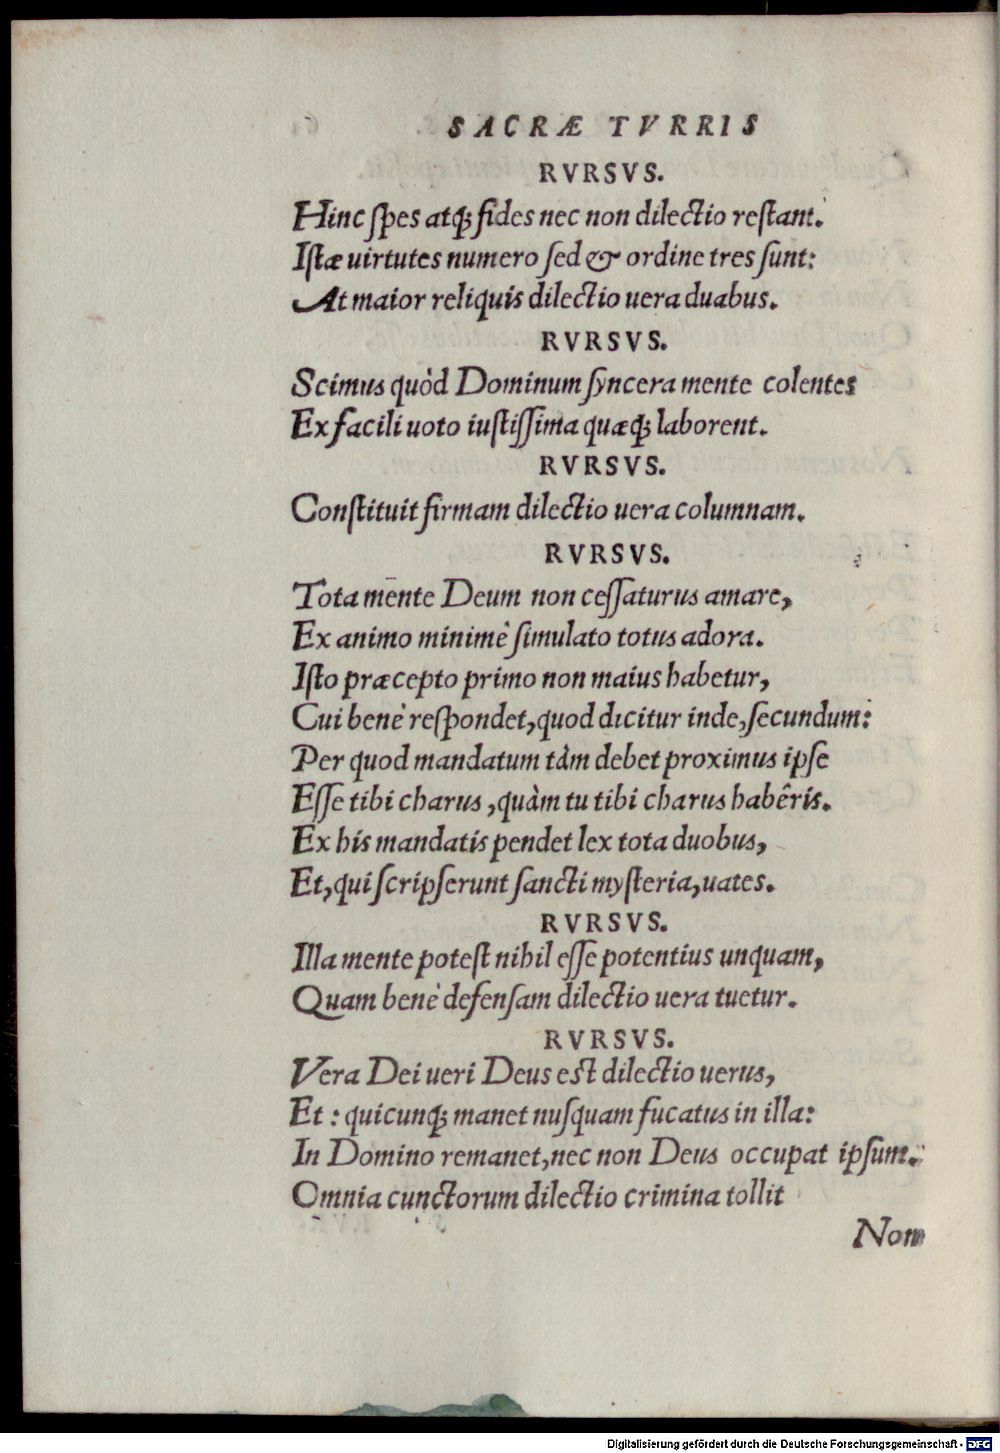 SACRÆ TVRRIS
RVRSVS.
Hinc spes atq; fides nec non dilectio restant.
Istæ uirtutes numero sed & ordine tres sunt:
At maior reliquis dilectio uera duabus.
RVRSVS.
Scimus quòd Dominum syncera mente colentes
Ex facili uoto iustissima quæq; laborent.
RVRSVS.
Constituit firmam dilectio uera columnam.
RVRSVS.
Tota mente Deum non cessaturus amare,
Ex animo minimè simulato totus adora.
Isto præcepto primo non maius habetur,
Cui benè respondet, quod dicitur inde, secundum:
Per quod mandatum tàm debet proximus ipse
Esse tibi charus, quàm tu tibi charus habêris.
Ex his mandatis pendet lex tota duobus,
Et, qui scripserunt sancti mysteria, uates.
RVRSVS.
Illa mente potest nihil esse potentius unquam,
Quam benè defensam dilectio uera tuetur.
RVRSVS.
Vera Dei ueri Deus est dilectio uerus,
Et: quicunq; manet nusquam fucatus in illa:
In Domino remanet, nec non Deus occupat ipsum.
Omnia cunctorum dilectio crimina tollit
Non
Digitalisierung gefördert durch die Deutsche Forschungsgemeinschaft - DFG